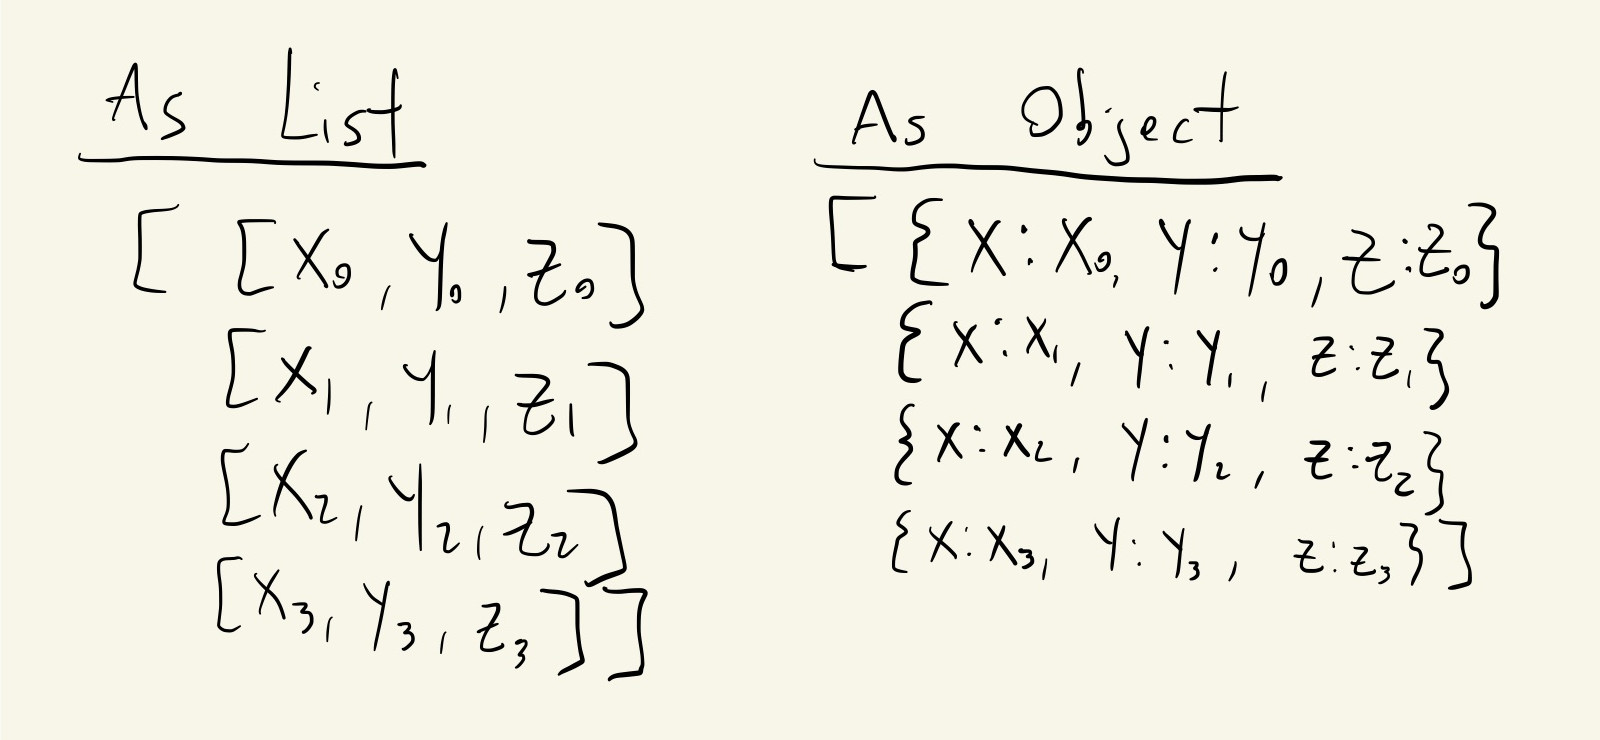 As List
[ [X₀, Y₀, Z₀]
[X₁, Y₁, Z₁]
[X₂, Y₂, Z₂]
[X₃, Y₃, Z₃] ]
As Object
[ {X:X₀, Y:Y₀, Z:Z₀}
{X:X₁, Y:Y₁, Z:Z₁}
{X:X₂, Y:Y₂, Z:Z₂}
{X:X₃, Y:Y₃, Z:Z₃} ]